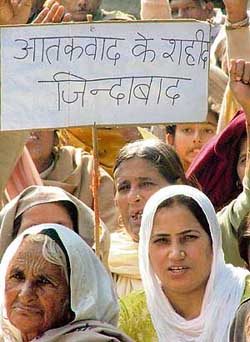 आतकवाद के शहीद
जिन्दाबाद